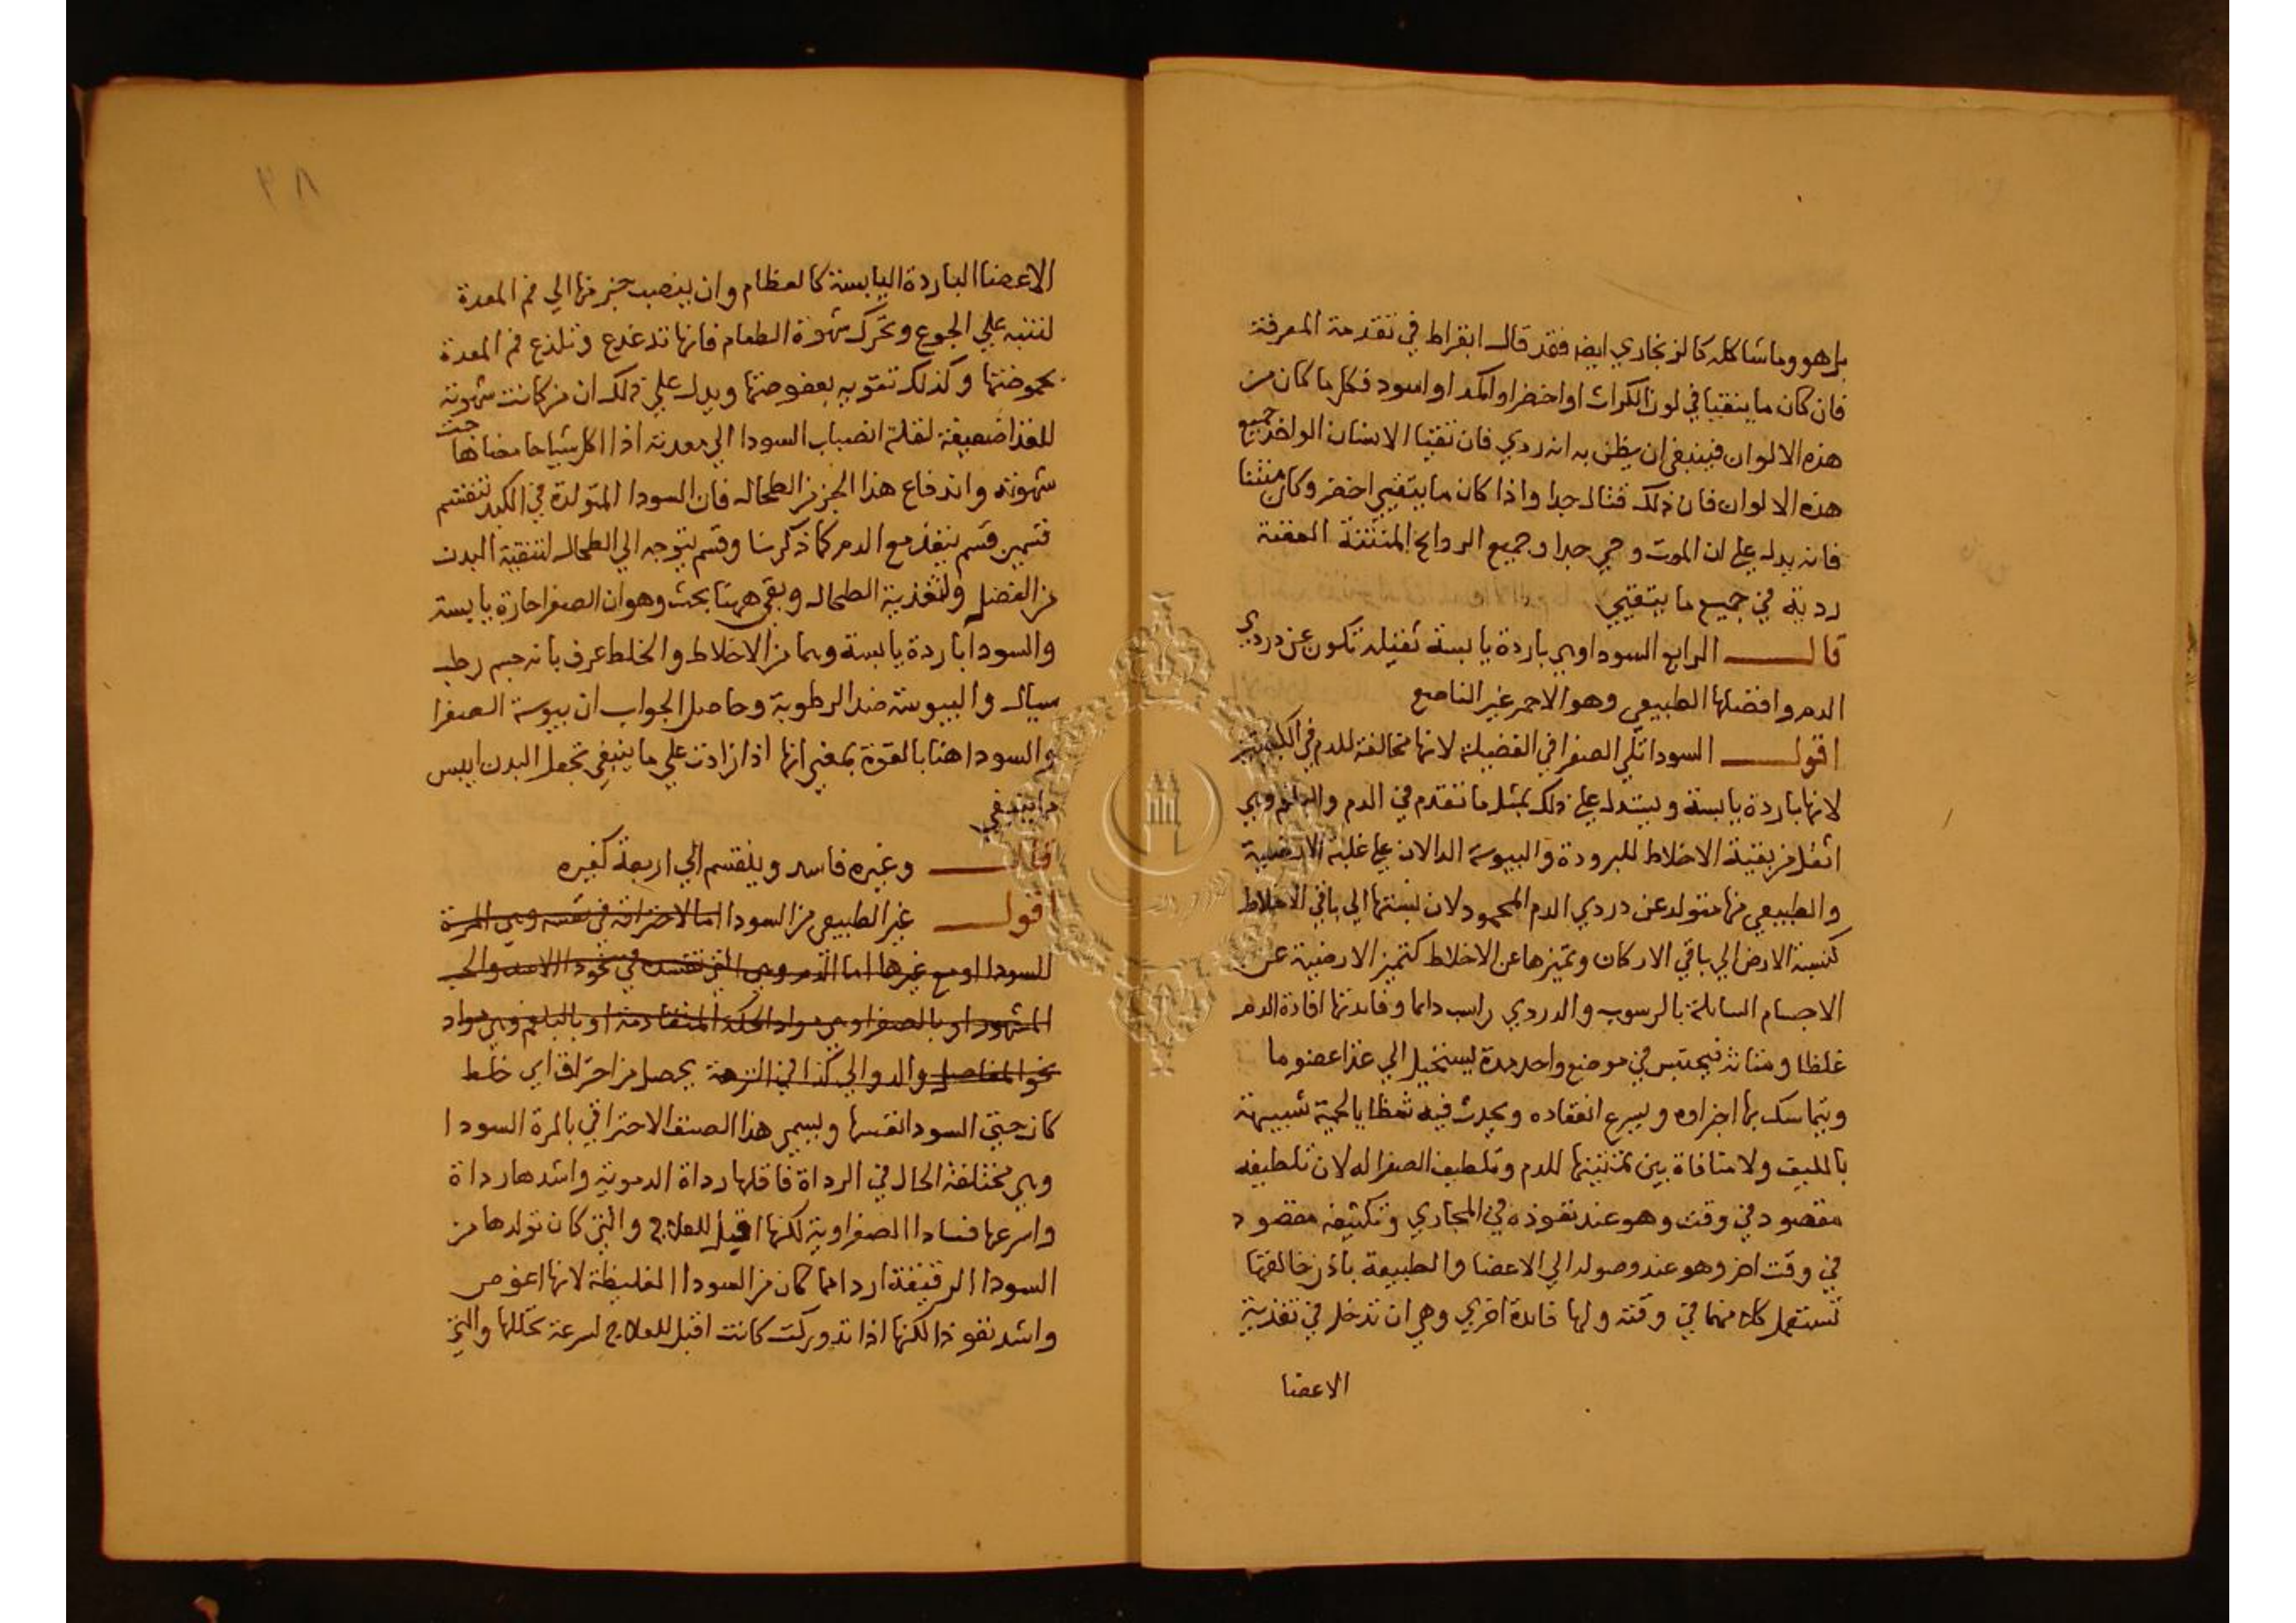 بل هو وما شاكله كالزنجاري ايضا فقد قال ابقراط في تقدمة المعرفة
فان كان ما يتقيا في لون الكراث او اخضر او اكمد او اسود فكل ما كان من
هذه الالوان فينبغي ان يظن به انه ردي فان تقيا الانسان الواحد جميع
هذه الالوان فان ذلك قتال جدا واذا كان ما يتقيي اخضر وكان منتنا
فانه يدل علي ان الموت وحي جدا وجميع الروايح المنتنة العفنة
ردية في جميع ما يتقيي
قال الرابع السودا وهي باردة يابسة ثقيله تكون عن دردي
الدم وافضلها الطبيعي وهو الاحمر غير الناصع
اقول السودا تلي الصفرا في الفضيلة لانها مخالفة للدم في الكيفيتين
لانها باردة يابسة ويستدل علي ذلك بمثل ما تقدم في الدم والبلغم وهي
اثقل من بقية الاخلاط للبرودة واليبوسة الدالان علي غلبة الارضية
والطبيعي منها متولد عن دردي الدم المحمود لان نسبتها الي باقي الاخلاط
كنسبة الارض الي باقي الاركان وتميزها عن الاخلاط كتميز الارضية عن
الاجسام السايلة بالرسوب والدردي راسب دايما وفايدتها افادة الدم
غلظا ومتانة فيحتبس في موضع واحد مدة ليستحيل الي غذا عضو ما
ويتماسك بها اجزاوه ويسرع انعقاده ويحدث فيه شظايا لحمية شبيهة
بالليف ولا منافاة بين تمتينها للدم وتلطيف الصفرا له لان تلطيفه
مقصود في وقت وهو عند نفوذه في المجاري وتكثيفه مقصود
في وقت اخر وهو عند وصوله الي الاعضا والطبيعة باذن خالقها
تستعمل كلا منهما في وقته ولها فايدة اخري وهي ان تدخل في تغذية
الاعضا
الاعضا الباردة اليابسة كالعظام وان ينصب جزء منها الي فم المعدة
لتنبه علي الجوع وتحرك شهوة الطعام فانها تدغدغ وتلذع فم المعدة
بحموضتها وكذلك تقويه بعفوصتها ويدل علي ذلك ان من كانت شهوته
للغذا ضعيفة لقلة انصباب السودا الي معدته اذا اكل شيا حامضا هاجت
شهوته واندفاع هذا الجزء من الطحال فان السودا المتولدة في الكبد تنقسم
قسمين قسم ينفذ مع الدم كما ذكرنا وقسم يتوجه الي الطحال لتنقية البدن
من الفضل ولتغذية الطحال وبقي ههنا بحث وهو ان الصفرا حارة يابسة
والسودا باردة يابسة وهما من الاخلاط والخلط عرف بانه جسم رطب
سيال واليبوسة ضد الرطوبة وحاصل الجواب ان يبوسة الصفرا
والسودا هنا بالقوة بمعني انها اذا زادت علي ما ينبغي تجعل البدن ايبس
ما ينبغي
قال وغيره فاسد وينقسم الي اربعة كغيره
اقول غير الطبيعي من السودا اما لاحتراقه في نفسه وهي المرة
للسودا او مع غيرها اما الدم وهي التي تفسد في نحو دا الاسد والحب
المشهود او بالصفرا وهي مواد الحكة المتقادمة او بالبلغم وهي مواد
نحو المفاصل والدوالي كذا في النزهة يحصل من احتراق اي خلط
كان حتي السودا نفسها ويسمي هذا الصنف الاحتراقي بالمرة السودا
وهي مختلفة الحال في الرداة فاقلها رداة الدموية واشدها رداة
واسرعها فسادا الصفراوية لكنها اقبل للعلاج والتي كان تولدها من
السودا الرقيقة اردا مما كان من السودا الغليظة لانها اغوص
واشد نفوذا لكنها اذا تدوركت كانت اقبل للعلاج لسرعة تحللها والتي